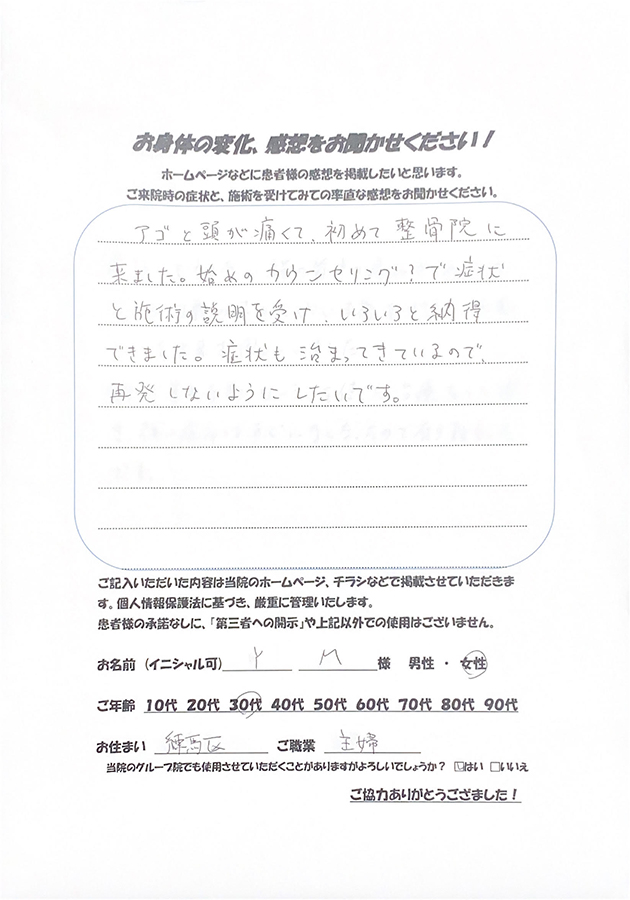 お身体の変化、感想をお聞かせください！
ホームページなどに患者様の感想を掲載したいと思います。
ご来院時の症状と、施術を受けてみての率直な感想をお聞かせください。
アゴと頭が痛くて、初めて整骨院に
来ました。始めのカウンセリング？で症状
と施術の説明を受け、いろいろと納得
できました。症状も治まってきているので、
再発しないようにしたいです。
ご記入いただいた内容は当院のホームページ、チラシなどで掲載させていただきま
す。個人情報保護法に基づき、厳重に管理いたします。
患者様の承諾なしに、「第三者への開示」や上記以外での使用はございません。
お名前（イニシャル可） Y M 様 男性 ・ 女性
ご年齢 10代 20代 30代 40代 50代 60代 70代 80代 90代
お住まい 練馬区 ご職業 主婦
当院のグループ院でも使用させていただくことがありますがよろしいでしょうか？ □はい □いいえ
ご協力ありがとうござました！